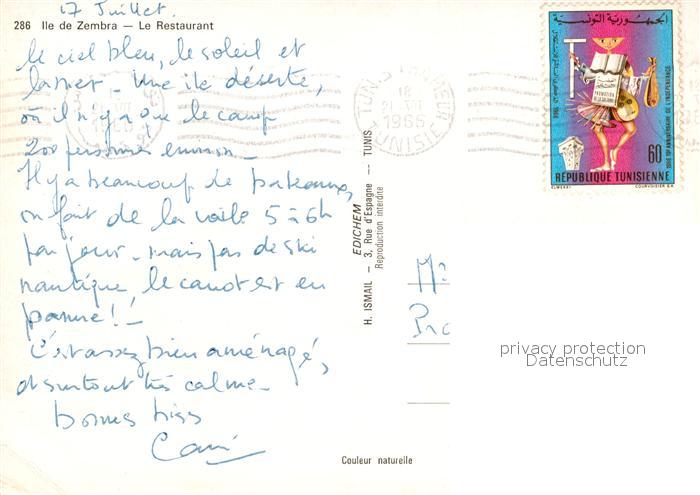 17 Juillet.
286 Ile de Zembra — Le Restaurant
le ciel bleu, le soleil et
la mer - Une île déserte,
où il n'y a que le camp
200 personnes environ -
Il y a beaucoup de bateaux,
on fait de la voile 5 à 6h
par jour - mais pas de ski
nautique, le canot est en
panne! -
C'est assez bien aménagé,
et surtout très calme -
bonnes bises
H. ISMAIL — 3, Rue d'Espagne — TUNIS
EDICHEM
Reproduction interdite
Couleur naturelle
الجمهورية التونسية
PROMOTION
DE LA CULTURE
1966
10E ANNIVERSAIRE DE L'INDEPENDANCE
60
REPUBLIQUE TUNISIENNE
ELMEKKI COURVOISIER S.A.
TUNIS
1966
TUNISIE
privacy protection
Datenschutz